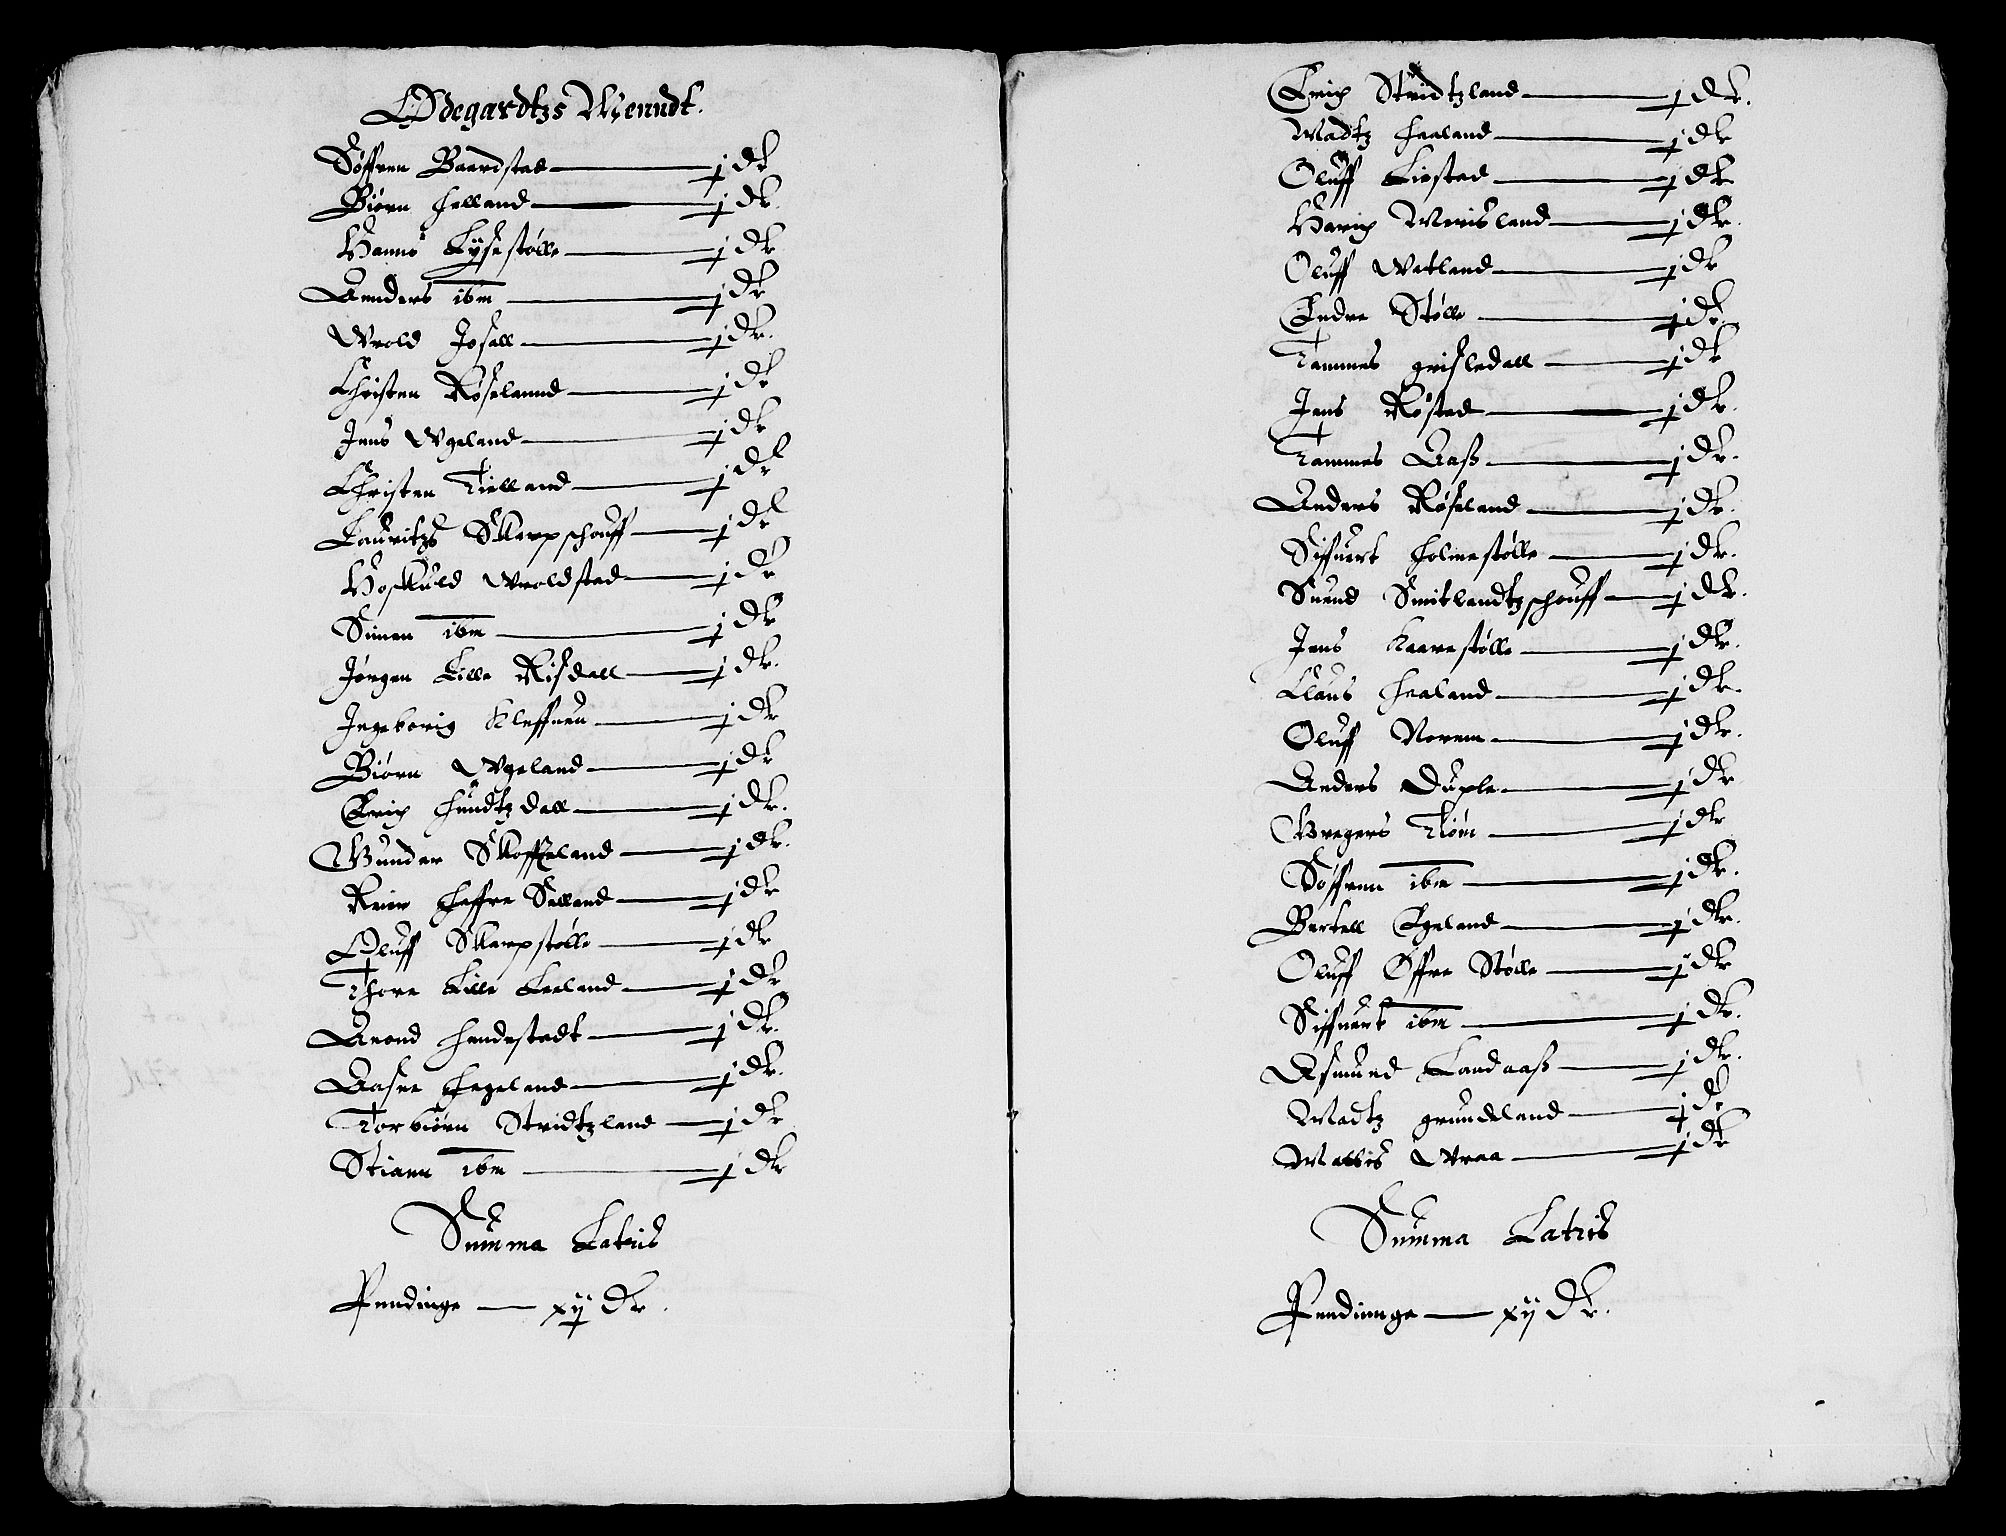 Ødegardtzs Menndt.
Søffren Baardstad — j dr
Biørn Helland — j dr.
Hanns Lysestølle — j dr
Annders ibm — j dr
Wrold Josall — j dr.
Christen Røselannd — j dr
Jens Wgeland — j dr
Christen Tielland — j dr
Lauritzs Skarpschouff — j dr
Hoskuld Wroldstad — j dr
Simen ibm — j dr
Jørgen Lille Risdall — j dr.
Ingeborig Kleffuen — j dr
Biørn Wgeland — j dr
Erich Hundtzdall — j dr.
Gunder Skoffteland — j dr.
Reier Heffre Selland — j dr
Oluff Skarpstølle — j dr
Thore Lille Leeland — j dr
Arond Handestadt — j dr.
Aasne Hegeland — j dr.
Torbiørn Stridtzland — j dr
Stiann ibm — j dr
Summa Latris
Pendinge — xij dr.
Erich Stridtzland — j dr.
Madtz Healand — j dr
Oluff Liestad — j dr
Harich Merisland — j dr.
Oluff Watland — j dr
Endre Stølle — j dr.
Tammes Grisledall — j dr
Jens Røstad — j dr.
Tammes Aaß — j dr.
Anders Røseland — j dr.
Siffuert Holmestølle — j dr.
Suend Smitlandtzschouff — j dr.
Jens Kaarestølle — j dr.
Claus Healand — j dr.
Oluff Norem — j dr.
Anders Duple — j dr
Gregers Tiøm — j dr
Søffrenn ibm — j dr.
Bertell Egeland — j dr.
Oluff Øffre Stølle — j dr
Siffuert ibm — j dr.
Asmund Landaaß — j dr.
Madtz Grundeland — j dr
Mattis Wraa — j dr
Summa Latris
Pendinnge — xij dr.